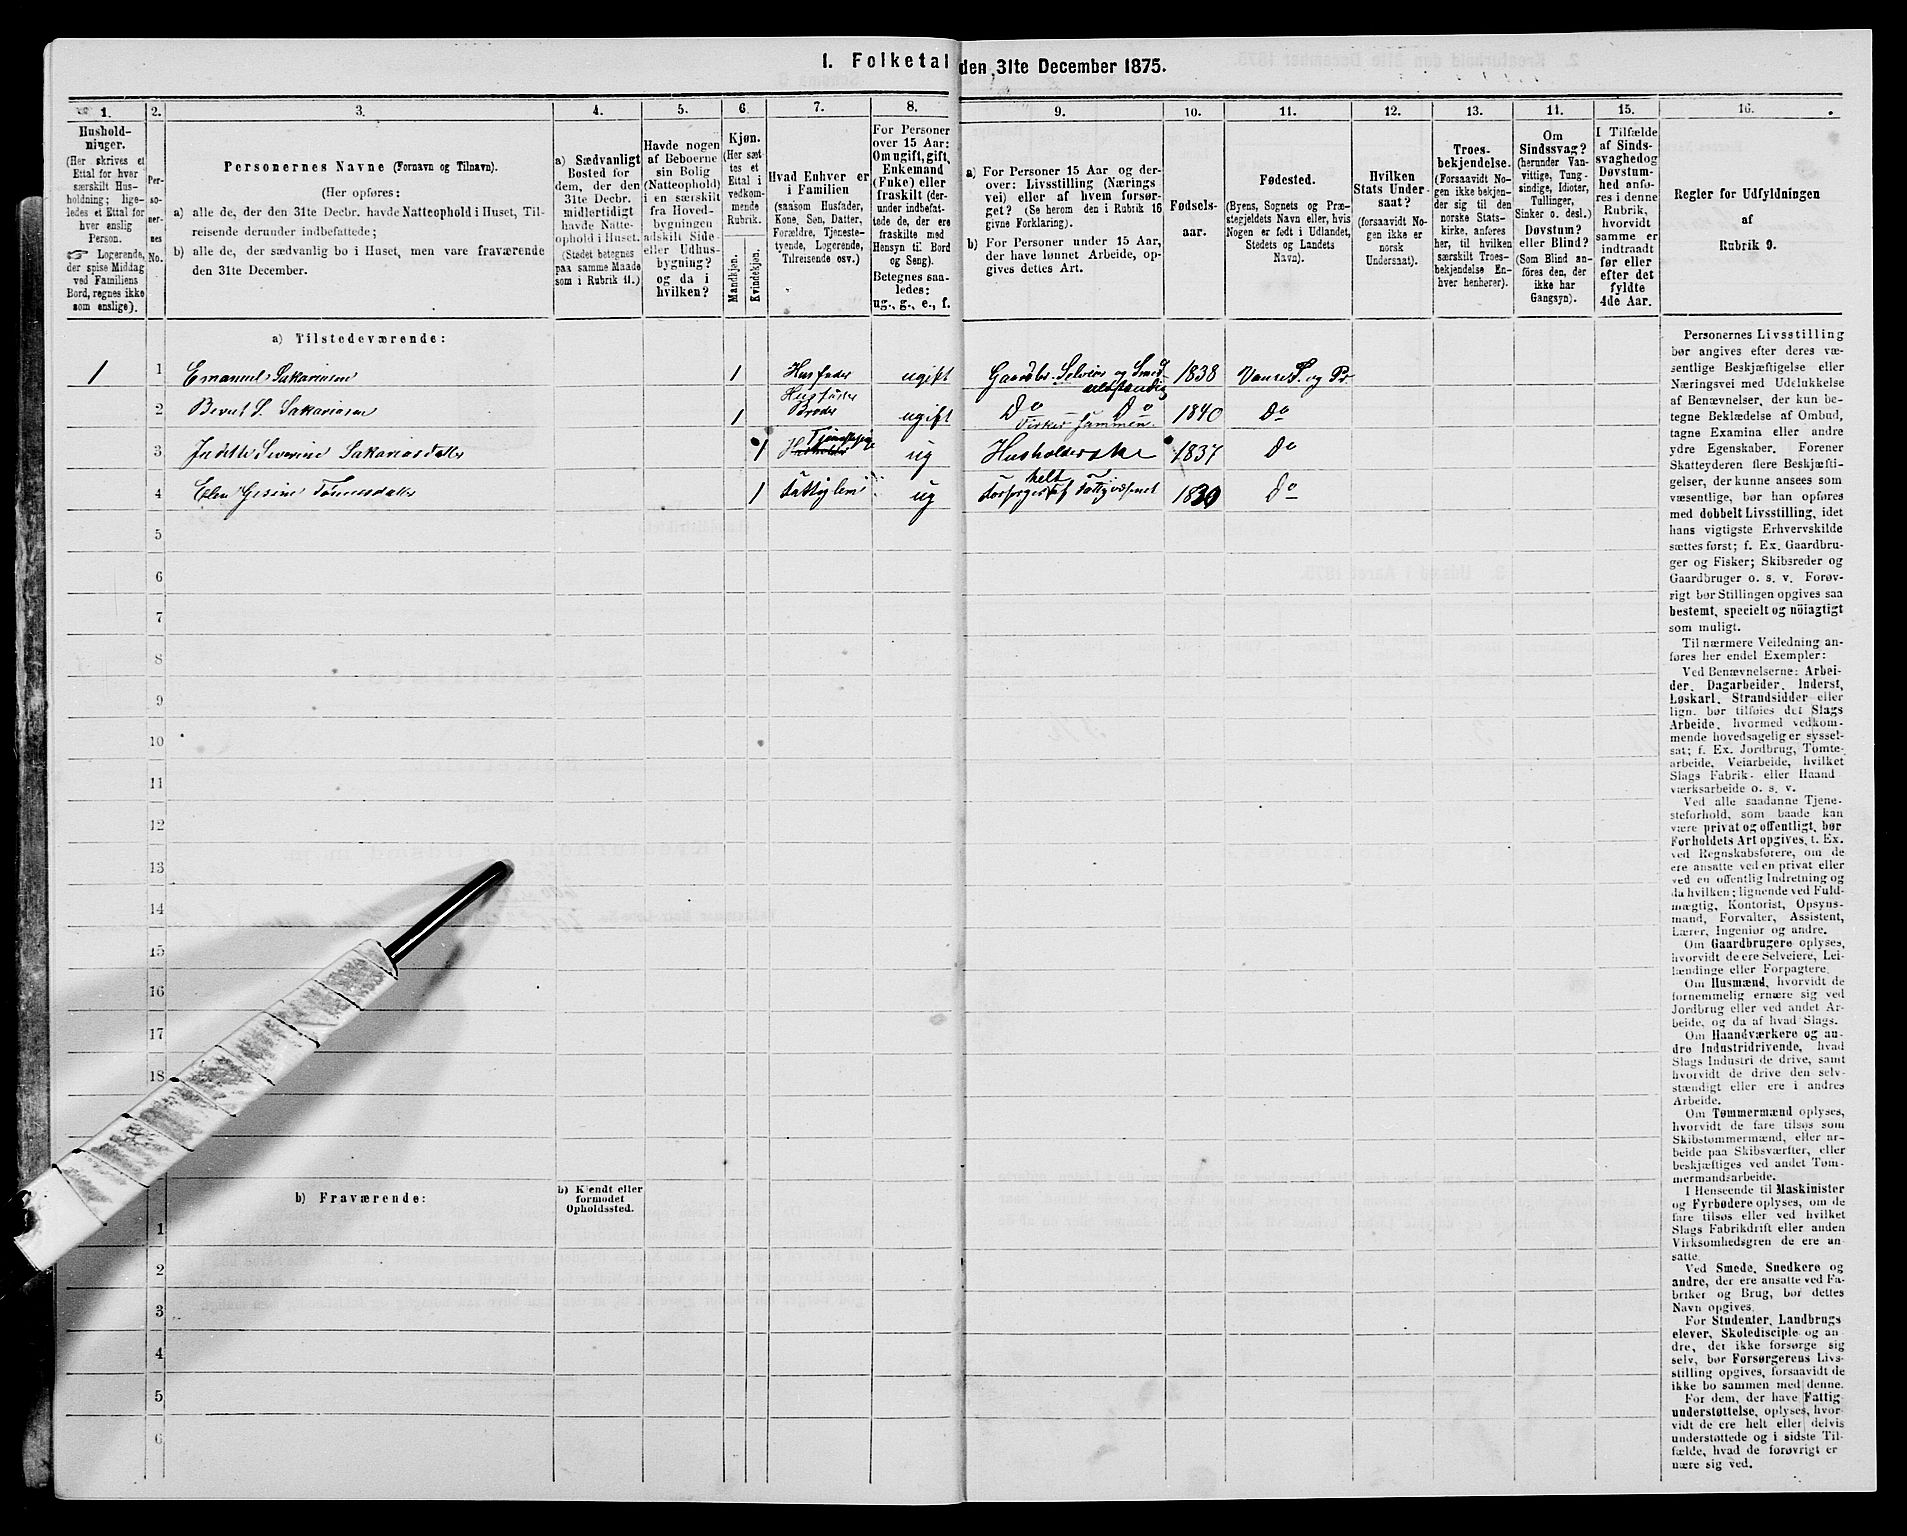 1. Folketal den 31te December 1875.
1. 2. 3. 4. 5. 6. 7. 8. 9. 10. 11. 12. 13. 11. 15. 16.
Hushold-
ninger.
(Her skrives et
Ettal for hver
særskilt Hus-
holdning; lige-
ledes et Ettal for
hver enslig
Person.
☞ Logerende,
der spise Middag
ved Familiens
Bord, regnes ikke
som enslige).
Per-
so-
ner-
nes
No.
Personernes Navne (Fornavn og Tilnavn).
(Her opføres:
a) alle de, der den 31te Decbr. havde Natteophold i Huset, Til-
reisende derunder indbefattede;
b) alle de, der sædvanlig bo i Huset, men vare fraværende
den 31te December.
a) Sædvanligt
Bosted for
dem, der den
31te Decbr.
midlertidigt
havde Natte-
ophold i Huset.
(Stedet betegnes
paa samme Maade
som i Rubrik 11.)
Havde nogen
af Beboerne
sin Bolig
(Natteophold)
i en særskilt
fra Hoved-
bygningen
adskilt Side
eller Udhus-
bygning?
og da i
hvilken?
Kjøn.
(Her sæt-
tes et
Ettal i
vedkom-
mende
Rubrik.
Mandkjøn.
Kvindekjøn.
Hvad Enhver er
i Familien
(saasom Husfader,
Kone, Søn, Datter,
Forældre, Tjeneste-
tyende, Logerende,
Tilreisende osv.)
For Personer
over 15 Aar:
Om ugift, gift,
Enkemand
(Enke) eller
fraskilt (der-
under indbefat-
tede de, der ere
fraskilte med
Hensyn til Bord
og Seng).
Betegnes saa-
ledes:
ug., g., e., f.
a) For Personer 15 Aar og der-
over: Livsstilling (Nærings
vei) eller af hvem forsør-
get? (Se herom den i Rubrik 16
givne Forklaring).
b) For Personer under 15 Aar,
der have lønnet Arbeide, op-
gives dettes Art.
Fødsels-
aar.
Fødested.
(Byens, Sognets og Præ-
stegjeldets Navn eller, hvis
Nogen er født i Udlandet,
Stedets og Landets
Navn).
Hvilken
Stats Under-
saat?
(forsaavidt No-
gen ikke er
norsk
Undersaat).
Troes-
bekjendelse.
(Forsaavidt No-
gen ikke bekjen-
der sig til den
norske Stats-
kirke, anføres
her, til hvilken
særskilt Troes-
bekjendelse En-
hver henhører).
Om
Sindssvag?
(herunder Van-
vittige, Tung-
sindige, Idioter,
Tullinger,
Sinker o. desl.)
Døvstum?
eller Blind?
(Som Blind an-
føres den, der
ikke har
Gangsyn).
I Tilfælde
af Sinds-
svaghed og
Døvstum-
hed anfø-
res i denne
Rubrik,
hvorvidt
samme er
indtraadt
før eller
efter det
fyldte
4de Aar.
Regler for Udfyldningen
af
Rubrik 9.
a) Tilstedeværende:
1 1 Emanuel Sakariasen 1 Husfader ugift Gaardbr. Selveier og Smed selvstændig 1838 Vanse S. og Pr
2 Bernt S. Sakariasen 1 Husfaders Broder ugift Do Do virker sammen. 1840 Do
3 Judithe Severine Sakariasdatter 1 Tjenestepige ug Husholderske 1837 Do
4 Elen Gesine Tønnesdatter 1 Fattiglem ug Forsørges helt af Fattigvæsenet 1830 Do
5
6
7
8
9
10
11
12
13
14
15
16
17
18
b) Fraværende:
b) Kjendt eller
formodet
Opholdssted.
1
2
3
4
5
6
Personernes Livsstilling
bør angives efter deres væ-
sentlige Beskjæftigelse eller
Næringsvei med Udelukkelse
af Benævnelser, der kun be-
tegne Beklædelse af Ombud,
tagne Examina eller andre
ydre Egenskaber. Forener
Skatteyderen flere Beskjæfti-
gelser, der kunne ansees som
væsentlige, bør han opføres
med dobbelt Livsstilling, idet
hans vigtigste Erhvervskilde
sættes først; f. Ex. Gaardbru-
ger og Fisker; Skibsreder og
Gaardbruger o. s. v. Forøv-
rigt bør Stillingen opgives saa
bestemt, specielt og nöiagtigt
som muligt.
Til nærmere Veiledning an-
føres her endel Exempler:
Ved Benævnelserne: Arbei-
der, Dagarbeider, Inderst,
Løskarl, Strandsidder eller
lign. bør tilføies det Slags
Arbeide, hvormed vedkom-
mende hovedsagelig er syssel-
sat; f. Ex. Jordbrug, Tomte-
arbeide, Veiarbeide, hvilket
Slags Fabrik- eller Haand
værksarbeide o. s. v.
Ved alle saadanne Tjene-
steforhold, som baade kan
være privat og offentligt, bør
Forholdets Art opgives, t. Ex.
ved Regnskabsførere, om de
ere ansatte ved en privat eller
ved en offentlig Indretning og
da hvilken; lignende ved Fuld-
mægtig, Kontorist, Opsyns-
mand, Forvalter, Assistent,
Lærer, Ingeniør og andre.
Om Gaardbrugere oplyses,
hvorvidt de ere Selveiere, Lei-
lændinge eller Forpagtere.
Om Husmænd, hvorvidt de
fornemmelig ernære sig ved
Jordbrug eller ved andet Ar-
beide, og da af hvad Slags.
Om Haandværkere og an-
dre Industridrivende, hvad
Slags Industri de drive, samt
hvorvidt de drive den selv-
stændigt eller ere i andres
Arbeide.
Om Tømmermænd oplyses,
hvorvidt de fare tilsøs som
Skibstømmermænd, eller ar-
beide paa Skibsværfter, eller
beskjæftiges ved andet Tøm-
mermandsarbeide.
I Henseende til Maskinister
og Fyrbødere oplyses, om de
fare tilsøs eller ved hvilket
Slags Fabrikdrift eller anden
Virksomhedsgren de ere an-
satte.
Ved Smede, Snedkere og
andre, der ere ansatte ved Fa-
briker og Brug, bør dettes
Navn opgives.
For Studenter, Landbrugs
elever, Skoledisciple og an-
dre, der ikke forsørge sig
selv, bør Forsørgerens Livs-
stilling opgives, forsaavidt de
ikke bo sammen med denne.
For dem, der have Fattig-
understøttelse, oplyses, hvor-
vidt de ere helt eller delvis
understøttede og i sidste Til-
fælde, hvad de forøvrigt er
nære sig ved.